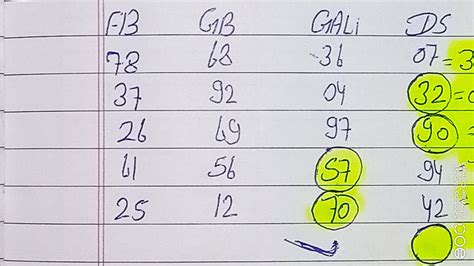 FB GB GALi DS
78 68 36 07 = 3
37 92 04 32 =
26 69 97 90 =
61 56 57 94
25 12 70 42